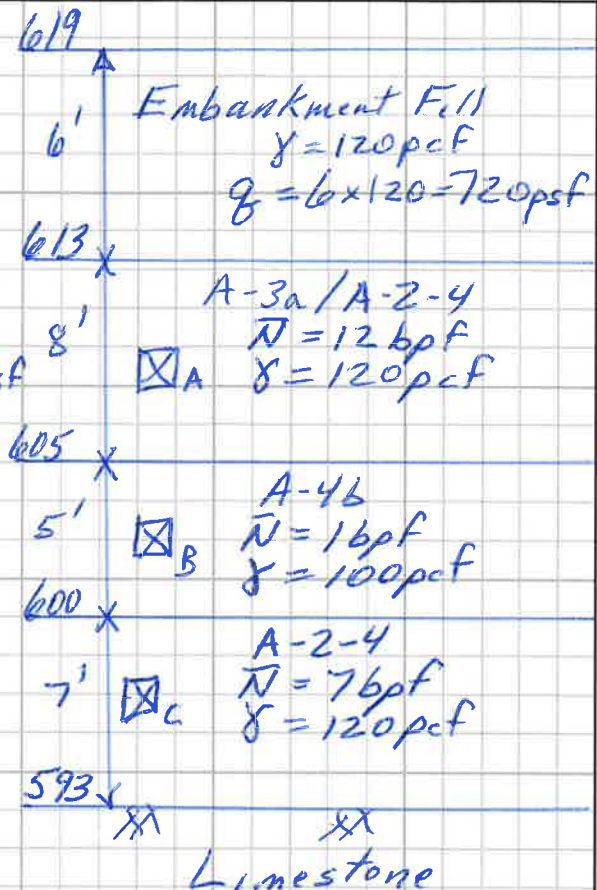 619
Embankment Fill
6' γ = 120pcf
q = 6x120=720psf
613
A-3a/A-2-4
8' N̅ = 12bpf
A γ = 120pcf
605
A-4b
5' N̅ = 1bpf
B γ = 100pcf
600
A-2-4
7' N̅ = 7bpf
C γ = 120pcf
593
Limestone